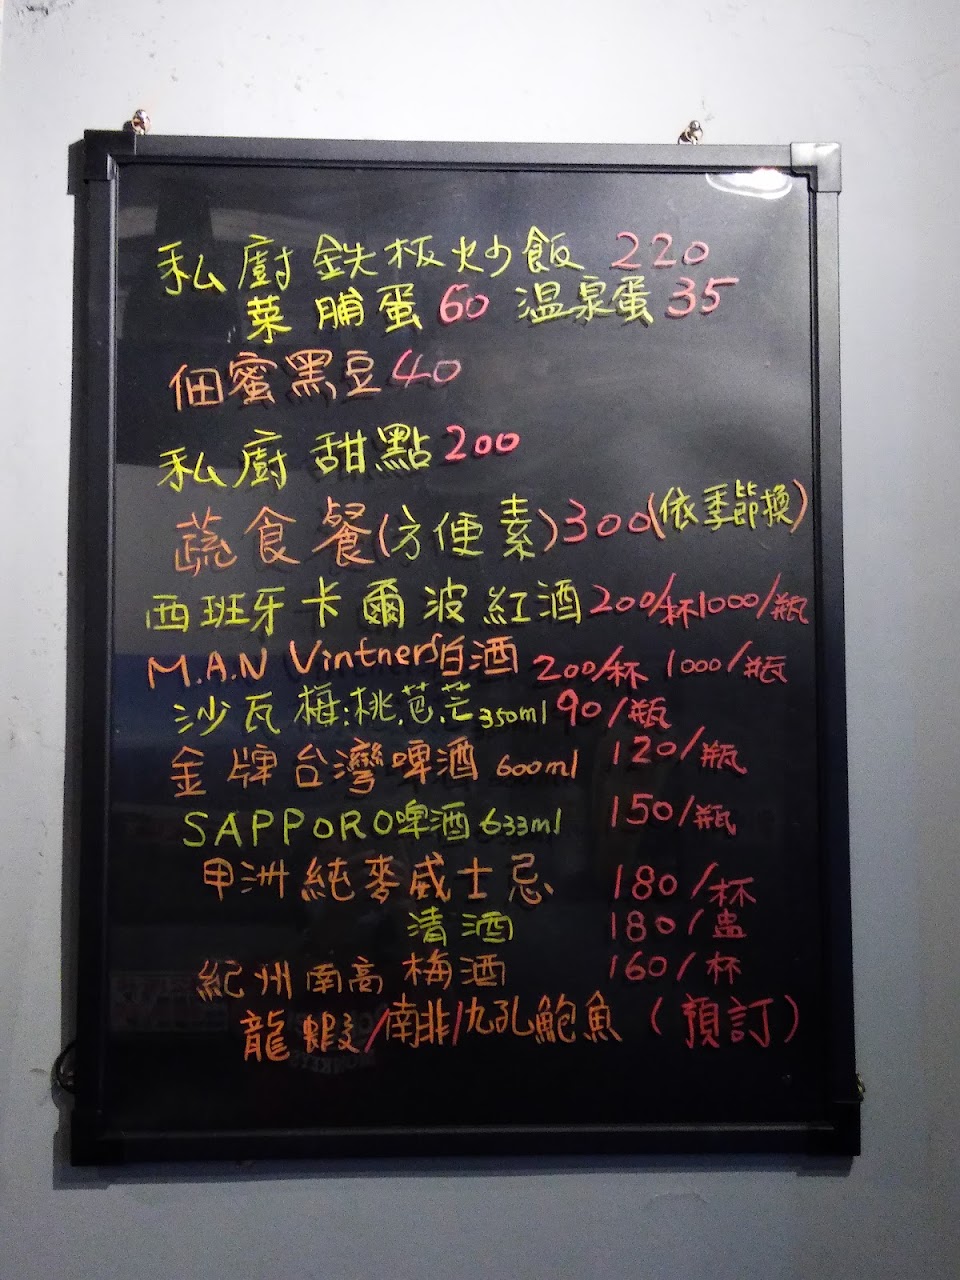 私廚鉄板炒飯 220
菜脯蛋 60 温泉蛋 35
佃蜜黑豆 40
私廚甜點 200
蔬食餐(方便素)300(依季節換)
西班牙卡爾波紅酒 200/杯 1000/瓶
M.A.N Vintners白酒 200/杯 1000/瓶
沙瓦 梅.桃.芭.芒 350ml 90/瓶
金牌台灣啤酒 600ml 120/瓶
SAPPORO啤酒 633ml 150/瓶
甲洲純麥威士忌 180/杯
清酒 180/盅
紀州南高梅酒 160/杯
龍蝦/南非/九孔鮑魚(預訂)